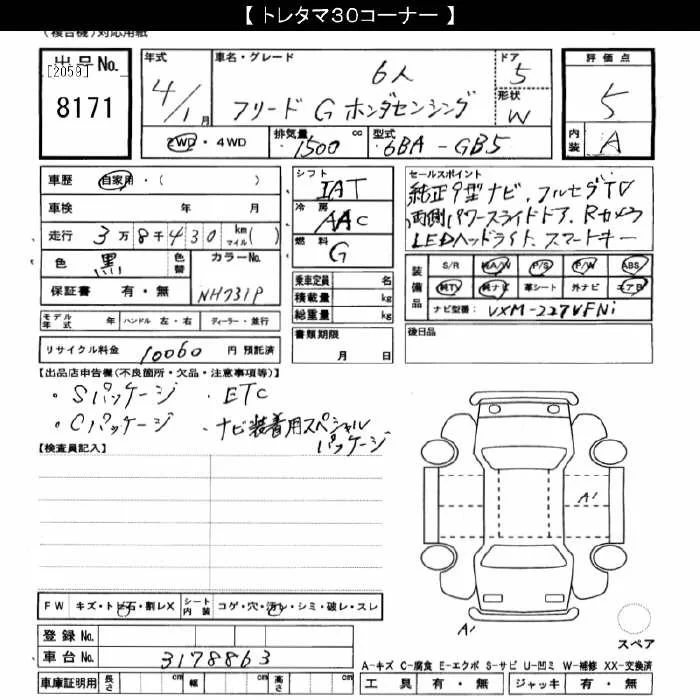 【 トレタマ30コーナー 】
(複合機)対応用紙
出品No.
[2059]
8171
年式
4/1月
車名・グレード
6人
フリード G ホンダセンシング
ドア
5
形状
W
評価点
5
内装
A
2WD・4WD
排気量
1500 cc
型式
6BA-GB5
車歴 自家用・( )
車検 年 月
走行 3万8千430 km マイル( )
色 黒 色替 カラーNo.
保証書 有・無 NH731P
シフト
IAT
冷房
AAC
燃料
G
乗車定員 名
積載量 kg
総重量 kg
書類期限
月 日
セールスポイント
純正9型ナビ、フルセグTV
両側パワースライドドア、Rカメラ
LEDヘッドライト、スマートキー
装備品
S/R A/W P/S P/W ABS
純TV 純ナビ 革シート 外ナビ エアB
ナビ型番: VXM-227VFNi
モデル年式 年 ハンドル 左・右 ディーラー・並行
後日品
リサイクル料金 10060 円 預託済
【出品店申告欄(不良箇所・欠品・注意事項等)】
・Sパッケージ ・ETC
・Cパッケージ ・ナビ装着用スペシャル
パッケージ
【検査員記入】
A1
FW キズ・トビ石・割レX シート内装 コゲ・穴・汚レ・シミ・破レ・スレ
A1
スペア
登録No.
車台No. 3178863
A-キズ C-腐食 E-エクボ S-サビ U-凹ミ W-補修 XX-交換済
車庫証明用 長さ cm 幅 cm 高さ cm
工具 有・無 ジャッキ 有・無